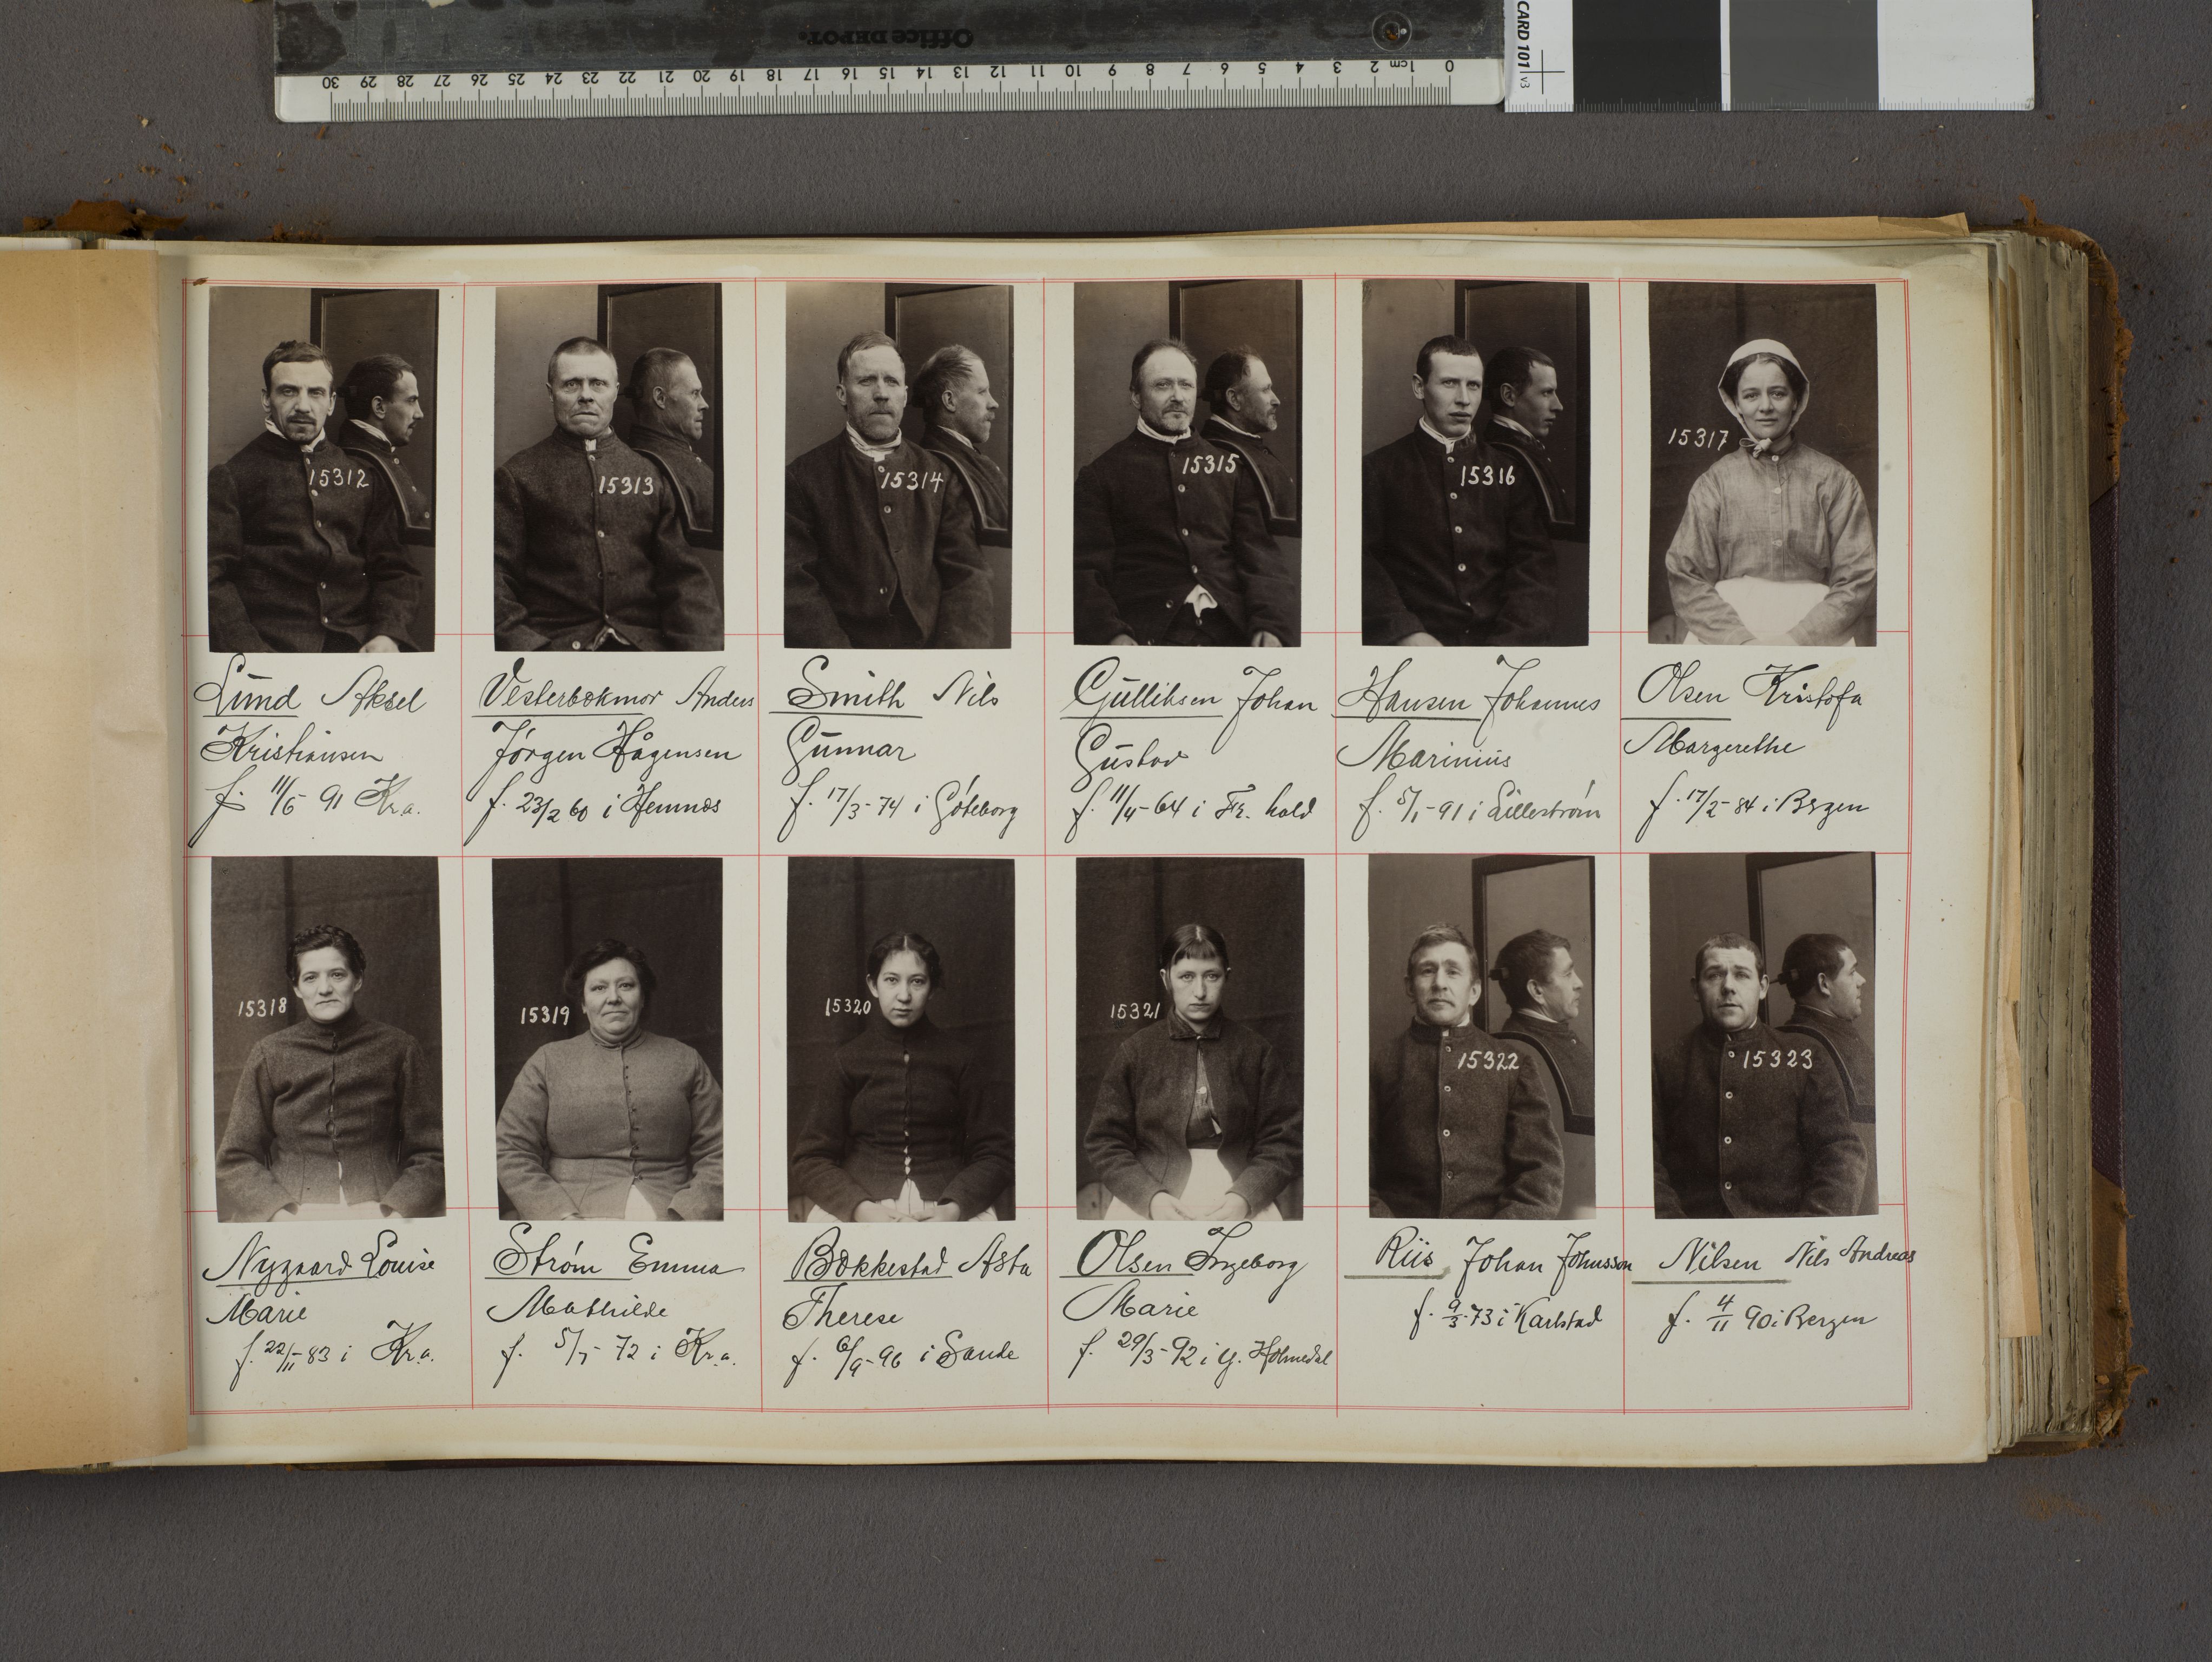 Office DEPOT.
0 1cm 2 3 4 5 6 7 8 9 10 11 12 13 14 15 16 17 18 19 20 21 22 23 24 25 26 27 28 29 30
CARD 101 v3
15312
15313
15314
15315
15316
15317
Lund Aksel
Kristiansen
f. 11/6 91 Kr.a.
Vesterbækmor Anders
Jörgen Hågensen
f. 23/2 60 i Hemnæs
Smith Nils
Gunnar
f. 17/3-74 i Göteborg
Gulliksen Johan
Gustav
f. 11/4-64 i Fr. hald
Hansen Johannes
Marinius
f. 5/1-91 i Lilleström
Olsen Kristofa
Margrethe
f. 17/2-84 i Bergen
15318
15319
15320
15321
15322
15323
Nygaard Louise
Marie
f. 22/11-83 i Kr.a.
Strøm Emma
Mathilde
f. 5/7-72 i Kr.a.
Bækkestad Asta
Therese
f. 6/9-96 i Sande
Olsen Ingeborg
Marie
f. 29/3-92 i Y. Holmedal
Riis Johan Johnsson
f. 9/3-73 i Karlstad
Nilsen Nils Andreas
f. 4/11 90 i Bergen